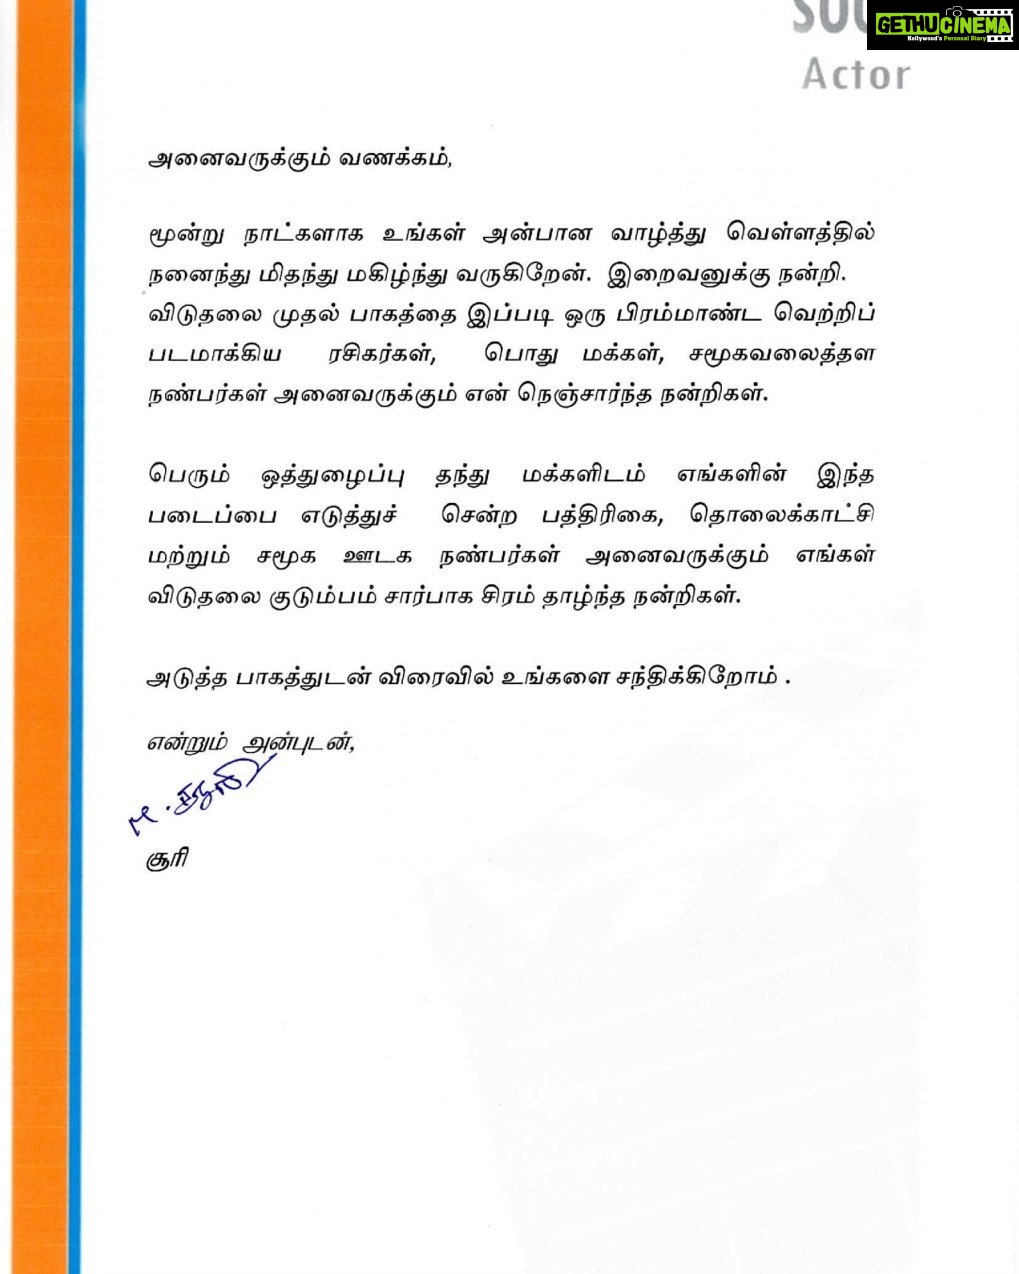 GETHUCINEMA
Kollywood's Personal Diary
Actor
அனைவருக்கும் வணக்கம்,
மூன்று நாட்களாக உங்கள் அன்பான வாழ்த்து வெள்ளத்தில்
நனைந்து மிதந்து மகிழ்ந்து வருகிறேன். இறைவனுக்கு நன்றி.
விடுதலை முதல் பாகத்தை இப்படி ஒரு பிரம்மாண்ட வெற்றிப்
படமாக்கிய ரசிகர்கள், பொது மக்கள், சமூகவலைத்தள
நண்பர்கள் அனைவருக்கும் என் நெஞ்சார்ந்த நன்றிகள்.
பெரும் ஒத்துழைப்பு தந்து மக்களிடம் எங்களின் இந்த
படைப்பை எடுத்துச் சென்ற பத்திரிகை, தொலைக்காட்சி
மற்றும் சமூக ஊடக நண்பர்கள் அனைவருக்கும் எங்கள்
விடுதலை குடும்பம் சார்பாக சிரம் தாழ்ந்த நன்றிகள்.
அடுத்த பாகத்துடன் விரைவில் உங்களை சந்திக்கிறோம் .
என்றும் அன்புடன்,
சூரி